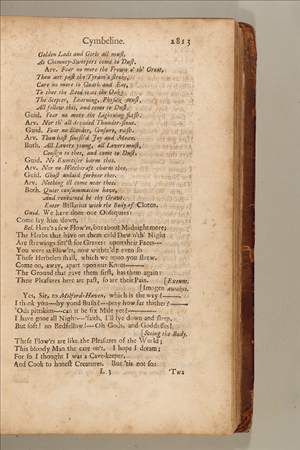 Cymbeline. 2813
Golden Lads and Girls all must,
As Chimney-Sweepers come to Dust.
Arv. Fear no more the Frown o' th' Great,
Thou art past the Tyrant's stroke,
Care no more to Cloath and Eat,
To thee the Reed is as the Oak;
The Scepter, Learning, Physick must,
All follow this, and come to Dust.
Guid. Fear no more the Lightning flash.
Arv. Nor th' all-dreaded Thunder-stone.
Guid. Fear no Slander, Censure, rash.
Arv. Thou hast finish'd Joy and Moan.
Both. All Lovers young, all Lovers must,
Consign to thee, and come to Dust.
Guid. No Exorciser harm thee.
Arv. Nor no Witchcraft charm thee.
Guid. Ghost unlaid forbear thee.
Arv. Nothing ill come near thee.
Both. Quiet consummation have,
And renowned be thy Grave.
Enter Bellarius with the Body of Cloten.
Guid. We have done our Obsequies:
Come lay him down.
Bel. Here's a few Flow'rs, but about Midnight more;
The Herbs that have on them cold Dew o'th' Night
Are strewings fitt'st for Graves: upon their Faces—
You were as Flow'rs, now wither'd; even so
These Herbelets shall, which we upon you strew.
Come on, away, apart upon our Knees———
The Ground that gave them first, has them again:
Their Pleasures here are past, so are their Pain. [Exeunt.
[Imogen awakes.
Yes, Sir, to Milford-Haven, which is the way?———
I thank you—by yond Bush?—pray how far thither?———
'Ods pittikins—can it be six Mile yet?———
I have gone all Night—'faith, I'll lye down and sleep.
But soft! no Bedfellow!—Oh Gods, and Goddesses!
[Seeing the Body.
These Flow'rs are like the Pleasures of the World;
This bloody Man the care on't. I hope I dream;
For so I thought I was a Cave-keeper,
And Cook to honest Creatures. But 'tis not so:
L 3 'Twas